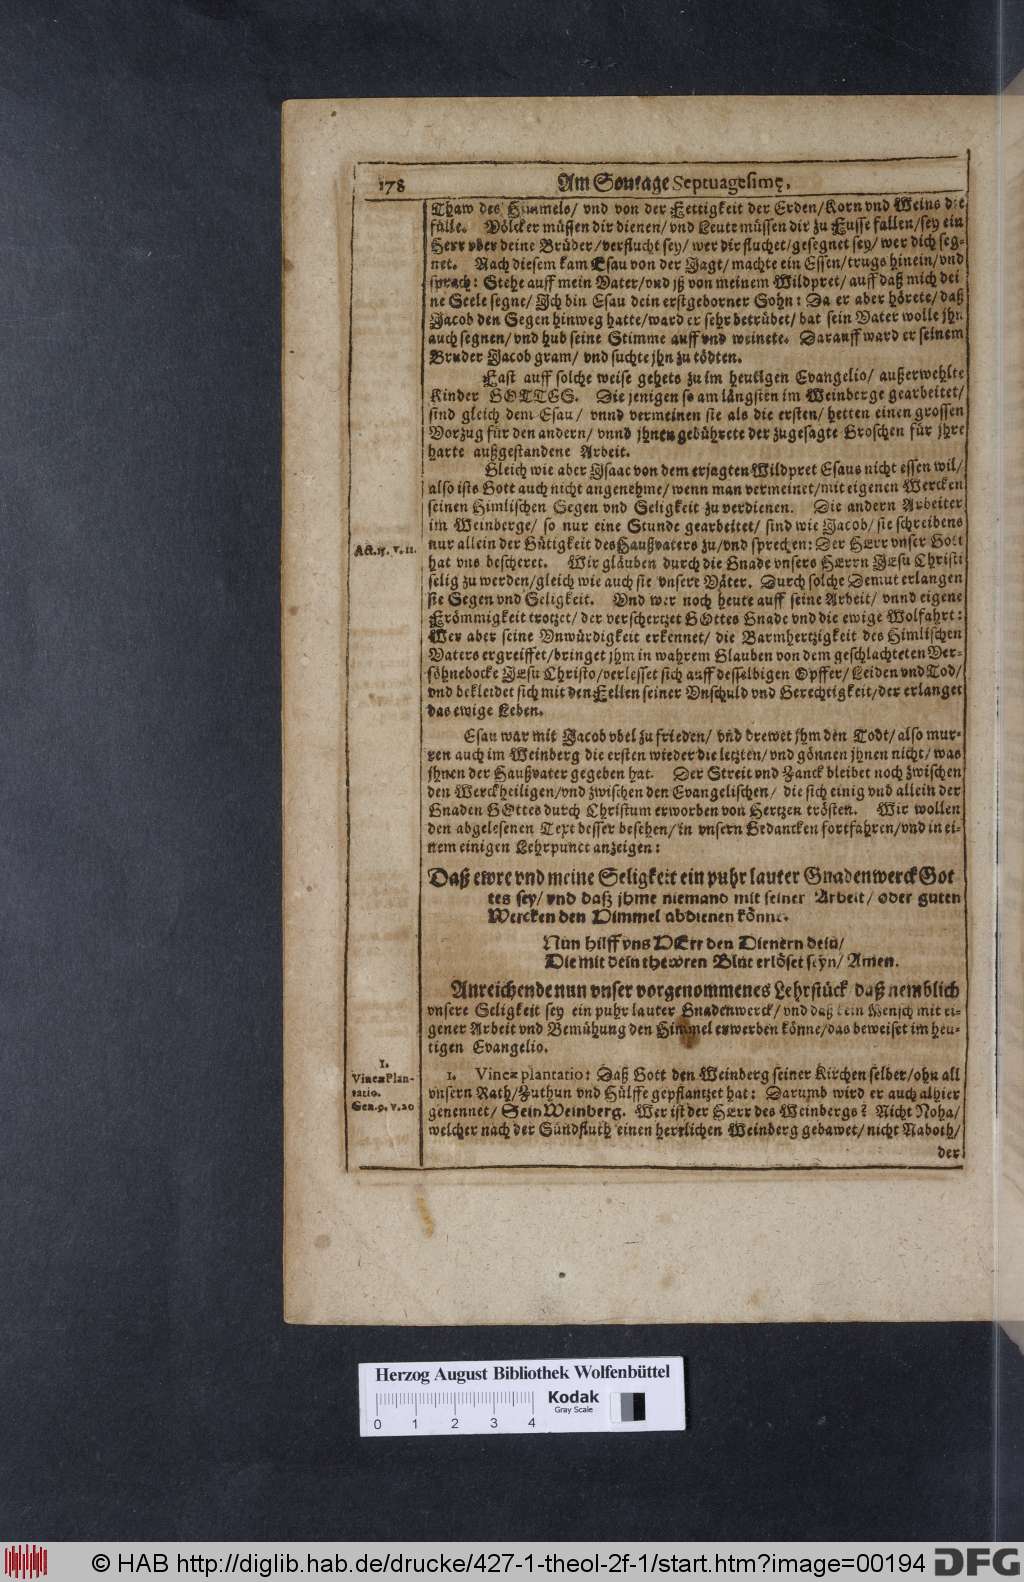 178
Am Sontage Septuagesimę.
Thaw des Himmels/ vnd von der Fettigkeit der Erden/ Korn vnd Weins die
fülle. Völcker müssen dir dienen/ vnd Leute müssen dir zu Fusse fallen/ sey ein
Herr vber deine Brüder/ verflucht sey/ wer dir fluchet/ gesegnet sey/ wer dich seg-
net. Nach diesem kam Esau von der Jagt/ machte ein Essen/ trugs hinein/ vnd
sprach: Stehe auff mein Vater/ vnd jß von meinem Wildpret/ auff daß mich dei
ne Seele segne/ Jch bin Esau dein erstgeborner Sohn: Da er aber hörete/ daß
Jacob den Segen hinweg hatte/ ward er sehr betrübet/ bat sein Vater wolle jhn
auch segnen/ vnd hub seine Stimme auff vnd weinete. Darauff ward er seinem
Bruder Jacob gram/ vnd suchte jhn zu tödten.
Fast auff solche weise gehets zu im heutigen Evangelio/ außerwehlte
Kinder GOTTES. Die jenigen so am längsten im Weinberge gearbeitet/
sind gleich dem Esau/ vnnd vermeinen sie als die ersten/ hetten einen grossen
Vorzug für den andern/ vnnd jhnen gebührete der zugesagte Groschen für jhre
harte außgestandene Arbeit.
Gleich wie aber Jsaac von dem erjagten Wildpret Esaus nicht essen wil/
also ists Gott auch nicht angenehme/ wenn man vermeinet/ mit eigenen Wercken
seinen Himlischen Segen vnd Seligkeit zu verdienen. Die andern Arbeiter
im Weinberge/ so nur eine Stunde gearbeitet/ sind wie Jacob/ sie schreibens
Act. 15. v. 11.
nur allein der Gütigkeit des Haußvaters zu/ vnd sprechen: Der HErr vnser Gott
hat vns bescheret. Wir gläuben durch die Gnade vnsers HErrn JEsu Christi
selig zu werden/ gleich wie auch sie vnsere Väter. Durch solche Demut erlangen
sie Segen vnd Seligkeit. Vnd wer noch heute auff seine Arbeit/ vnnd eigene
Frömmigkeit trotzet/ der verschertzet GOttes Gnade vnd die ewige Wolfahrt:
Wer aber seine Vnwürdigkeit erkennet/ die Barmhertzigkeit des Himlischen
Vaters ergreiffet/ bringet jhm in wahrem Glauben von dem geschlachteten Ver-
söhnebocke JEsu Christo/ verlesset sich auff desselbigen Opffer/ Leiden vnd Tod/
vnd bekleidet sich mit den Fellen seiner Vnschuld vnd Gerechtigkeit/ der erlanget
das ewige Leben.
Esau war mit Jacob vbel zu frieden/ vñd drewet jhm den Todt/ also mur-
ren auch im Weinberg die ersten wieder die letzten/ vnd gönnen jhnen nicht/ was
jhnen der Haußvater gegeben hat. Der Streit vnd Zanck bleibet noch zwischen
den Werckheiligen/ vnd zwischen den Evangelischen/ die sich einig vnd allein der
Gnaden GOttes durch Christum erworben von Hertzen trösten. Wir wollen
den abgelesenen Text besser besehen/ in vnsern Gedancken fortfahren/ vnd in ei-
nem einigen Lehrpunct anzeigen:
Daß ewre vnd meine Seligkeit ein puhr lauter Gnadenwerck Got
tes sey/ vnd daß jhme niemand mit seiner Arbeit/ oder guten
Wercken den Himmel abdienen könne.
Nun hilff vns HErr den Dienern dein/
Die mit dein thewren Blut erlöset seyn/ Amen.
Anreichende nun vnser vorgenommenes Lehrstück/ daß nemblich
vnsere Seligkeit sey ein puhr lauter Gnadenwerck/ vnd daß kein Mensch mit ei-
gener Arbeit vnd Bemühung den Himmel erwerben könne/ das beweiset im heu-
tigen Evangelio.
1.
Vineæ Plan-
tatio.
Gen. 9. v. 20
1. Vineæ plantatio: Daß Gott den Weinberg seiner Kirchen selber/ ohn all
vnsern Rath/ Zuthun vnd Hülffe gepflantzet hat: Darumb wird er auch alhier
genennet/ Sein Weinberg. Wer ist der HErr des Weinbergs? Nicht Noha/
welcher nach der Sündfluth einen herrlichen Weinberg gebawet/ nicht Naboth/
der
Herzog August Bibliothek Wolfenbüttel
Kodak
Gray Scale
0 1 2 3 4
© HAB http://diglib.hab.de/drucke/427-1-theol-2f-1/start.htm?image=00194
DFG